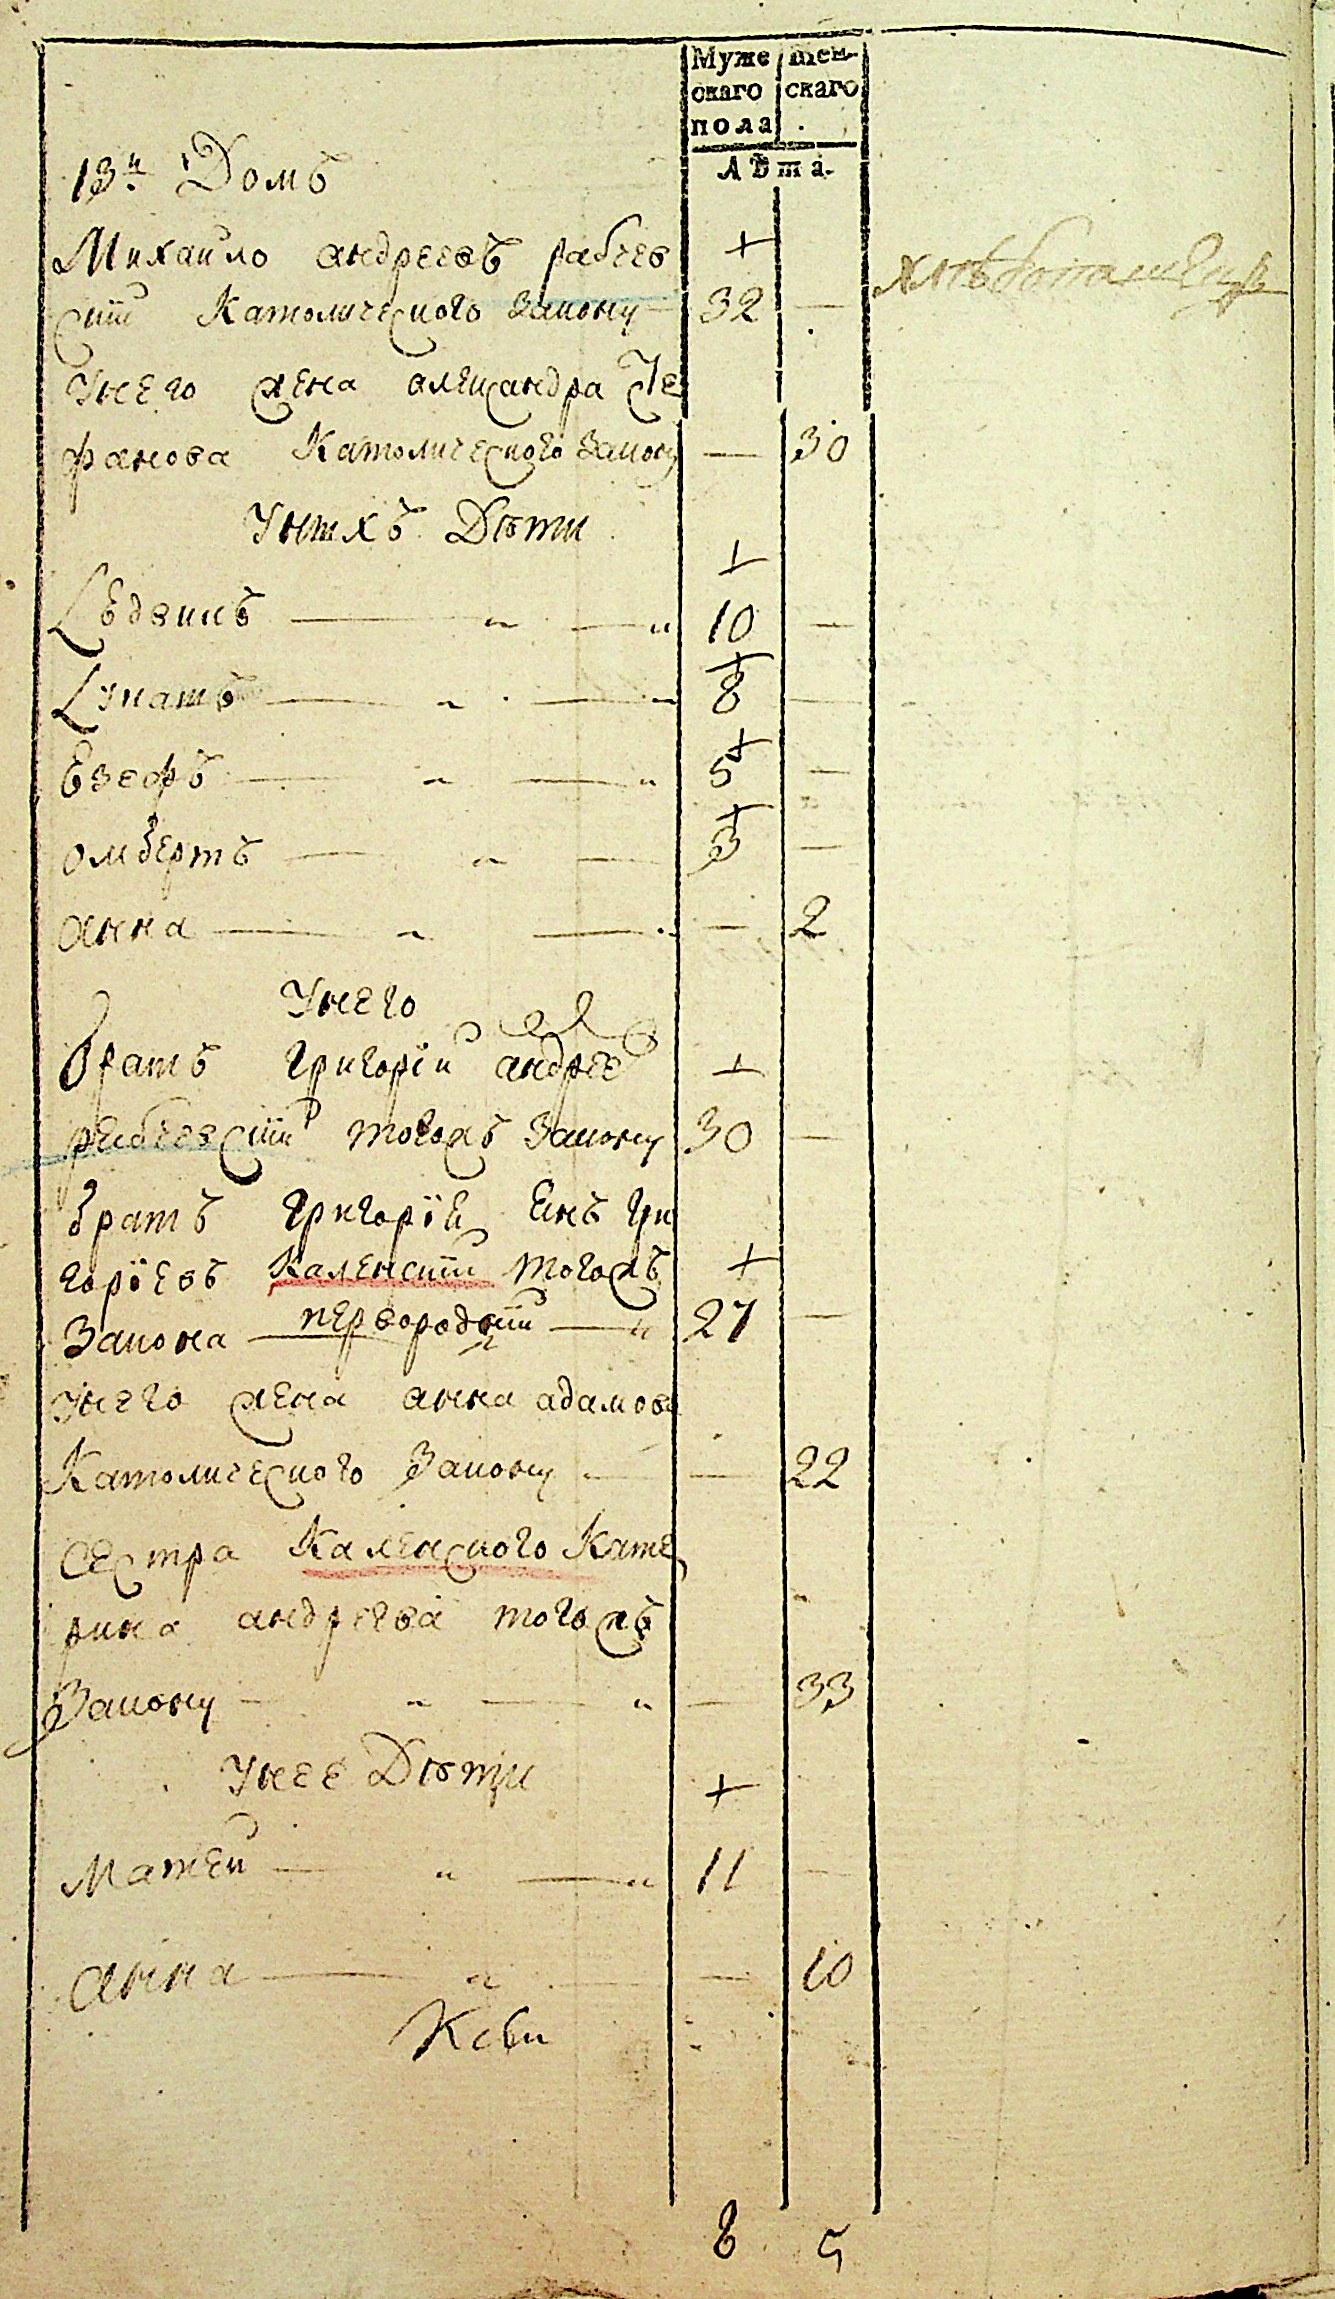 Муже
скаго
пола
жен-
скаго
Лѣта.
13й Домъ
Михайло андреевъ рабчев +
ский Католического Закону — 32 —
Унего жена александра Сте
фанова Католического Закону — 30
Унихъ Дѣти
+
Ледвикъ — „ — „ 10 —
+
Игнатъ — „ — „ 8 —
+
Езефъ — „ — „ 5 —
+
омбертъ — „ — 3 —
анна — „ — — 2
Унего
братъ григорій андрее в +
рабчевский тогожъ Закону 30 —
братъ григоріи Янъ гри
горіевъ Каленский тогожъ +
Закона — первородній — „ 27 —
Унего жена анна адамова
Католического Закону — — 22
Сестра Каленского Кате
рина андреева тогожъ
Закону — „ — „ — 33
Унее Дѣти
+
Матей — „ — „ 11 —
анна — „ — 10
8 5